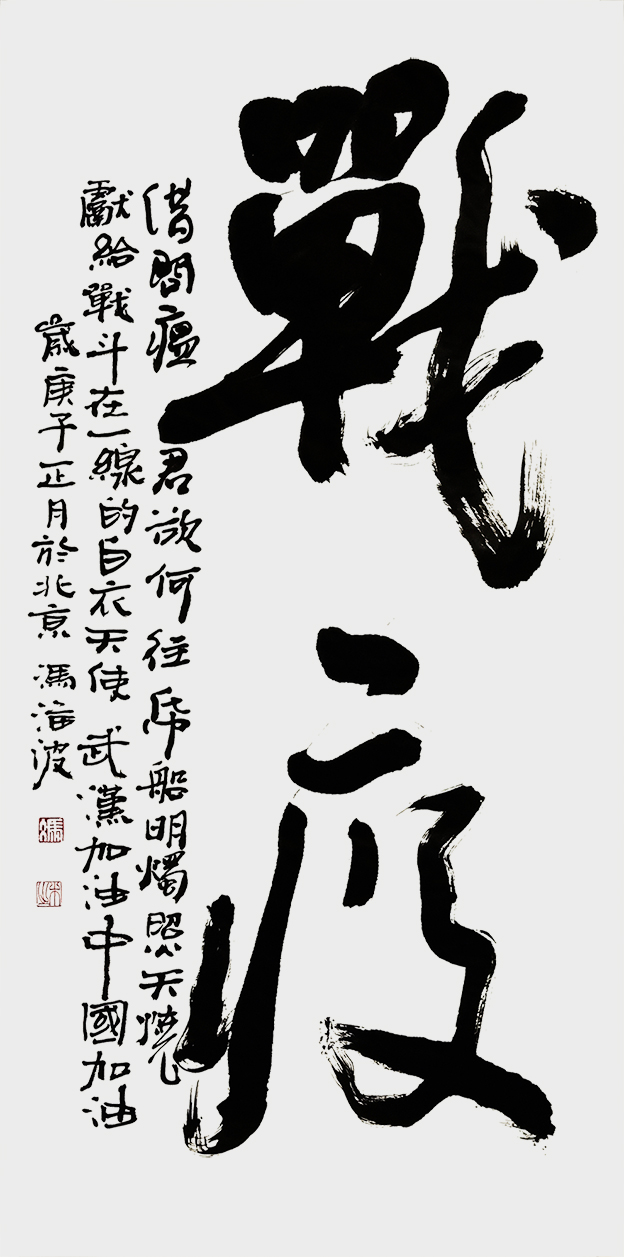 戰疫
借問瘟君欲何往帋船明燭照天燒
獻給戰斗在一線的白衣天使 武漢加油中國加油
歲庚子正月於北京 馮海波
馮